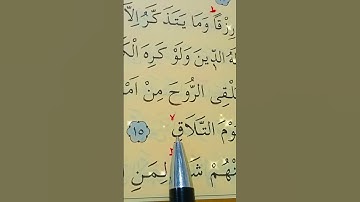 رِزْقًا وَمَا يَتَذَكَّرُ إِلَّا
لَهُ الدِّينَ وَلَوْ كَرِهَ
يُلْقِي الرُّوحَ مِنْ
يَوْمَ التَّلَاقِ ١٥
مِنْهُمْ لِمَنِ